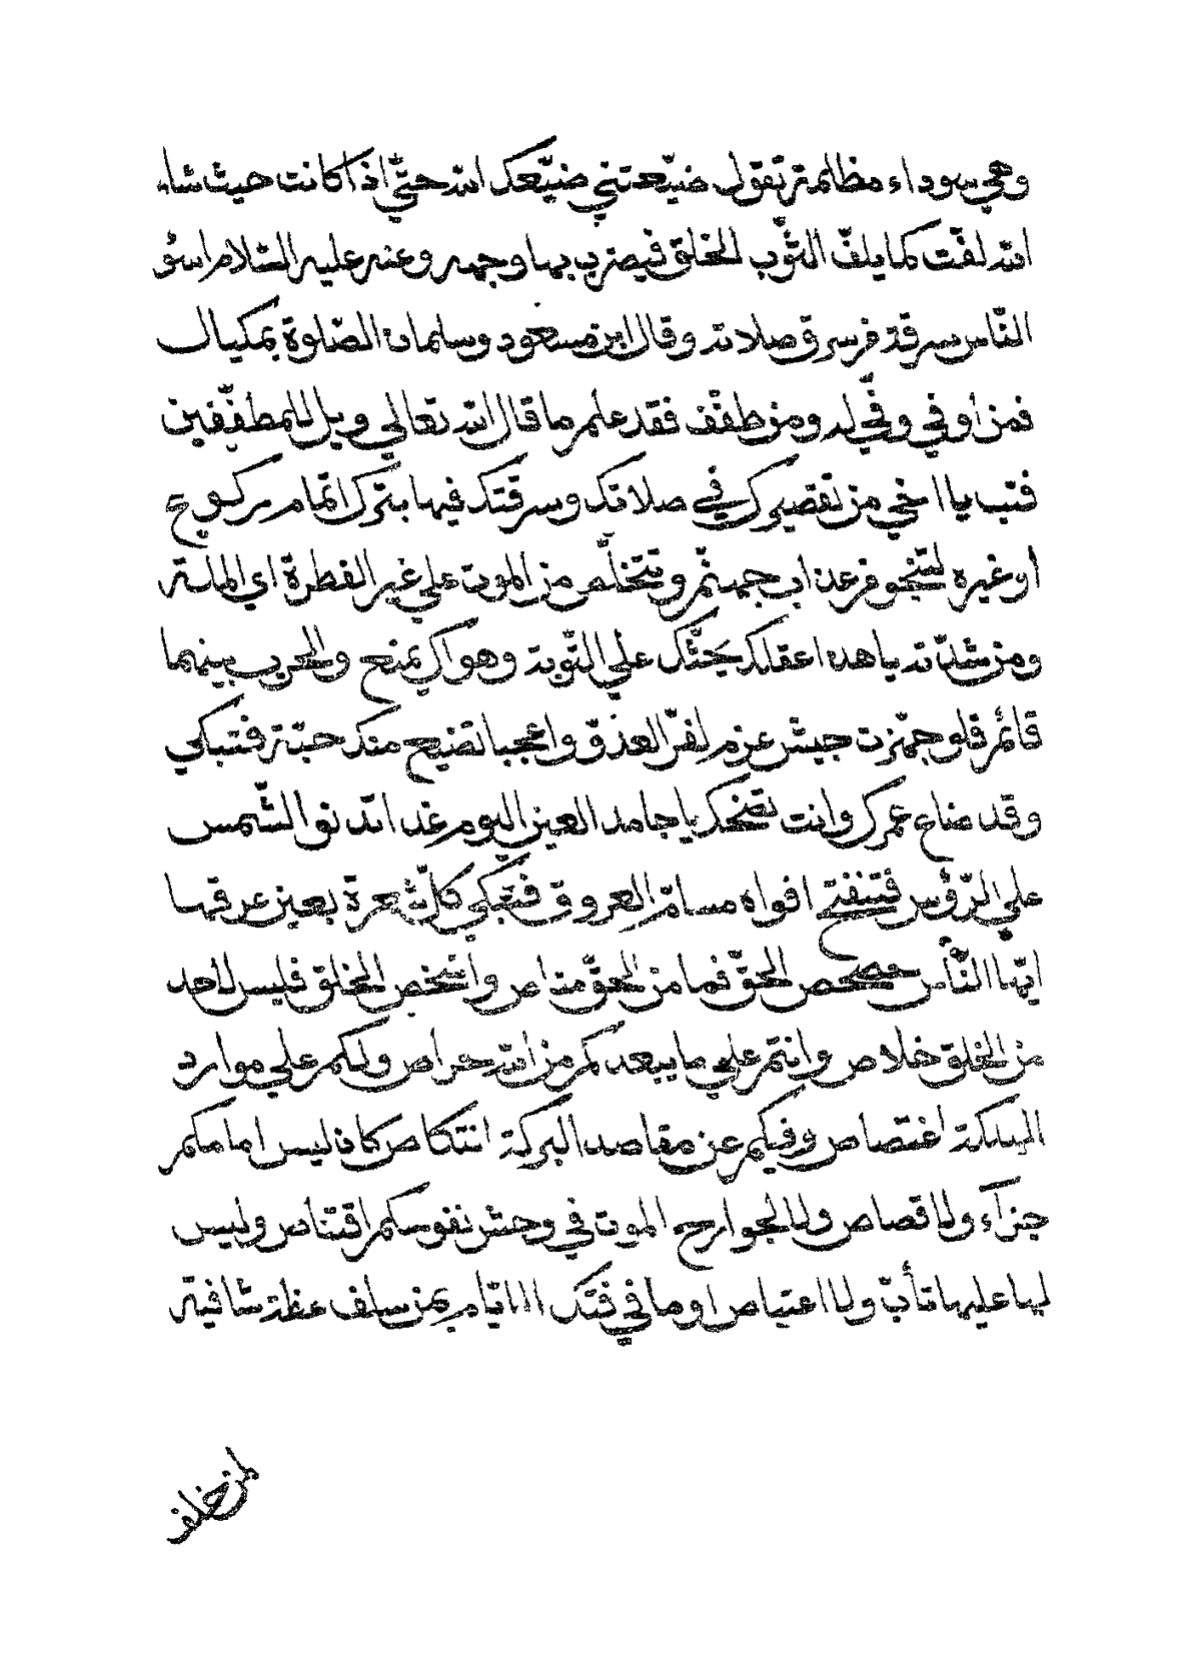 وهي سوداء مظلمة تقول ضيّعتني ضيّعك الله حتّي اذا كانت حيث شاء
الله لفّت كما يلفّ الثّوب الخلق فيضرب بها وجهه وعنه عليه السّلام اسؤ
النّاس سرقة من سرق صلاته وقال ابن مسعود وسلمان الصّلوة بمكيال
فمن أوفي وفّي له ومن طفّف فقد علم ما قال الله تعالي ويل للمطفّفين
فتب يا اخي من تقصيرك في صلاتك وسرقتك فيها بترك اتمام ركوع
أو غيره لتنجو من عذاب جهنّم وتتخلّص من الموت علي غير الفطرة اي الملّة
ومن شدّته يا هذا عقلك يحثّك علي التّوبة وهواك يمنع والحرب بينهما
قائم فلو جهّزت جيش عزم لفرّ العدوّ واعجبا تضيع منك حبّة فتبكي
وقد ضاع عمرك وانت تضحك يا جامد العين اليوم غدا تدنو الشّمس
علي الرّؤس فتنفتح افواه مسامّ العروق فتبكي كلّ شعرة بعين عرقها
ايّها النّاس حصحص الحقّ فما من الحقّ مناص واشخص الخلق فليس لأحد
من الخلق خلاص وانتم علي ما يبعدكم من الله حراص ولكم علي موارد
الهلكة اغتصاص وفيكم عن مقاصد البركة انتكاص كان ليس امامكم
جزآء ولا قصاص ولا لجوارح الموت في وحش نفوسكم اقتناص وليس
لها عليها تأبّ ولا اعتياص او ما في فتك الايّام بمن سلف عظة شافية
لمن خلف